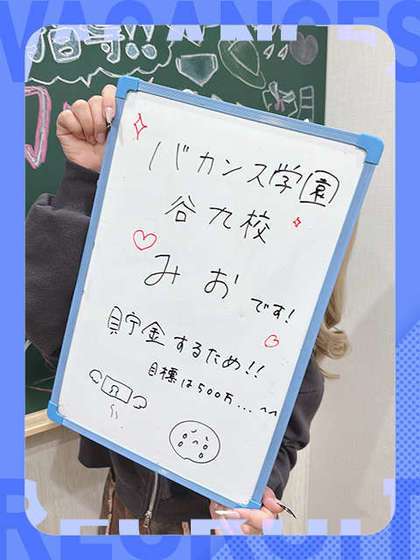 VACANCES
指導!!
バカンス学園
谷九校
みおです!
貯金するため!!
目標は500万...^^
RECRUIT